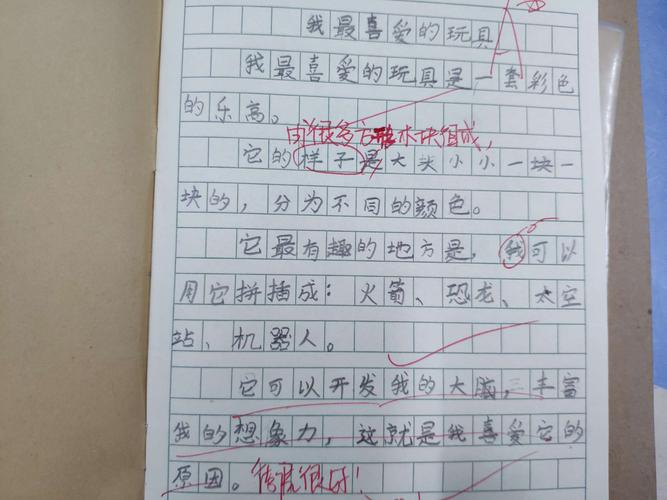 我最喜爱的玩具
我最喜爱的玩具是一套彩色
的乐高。
由很多方形木块组成,
它的样子是大大小小一块一
块的，分为不同的颜色。
它最有趣的地方是，我可以
用它拼插成：火箭、恐龙、太空
站、机器人。
它可以开发我的大脑，丰富
我的想象力，这就是我喜爱它的
原因。很好！